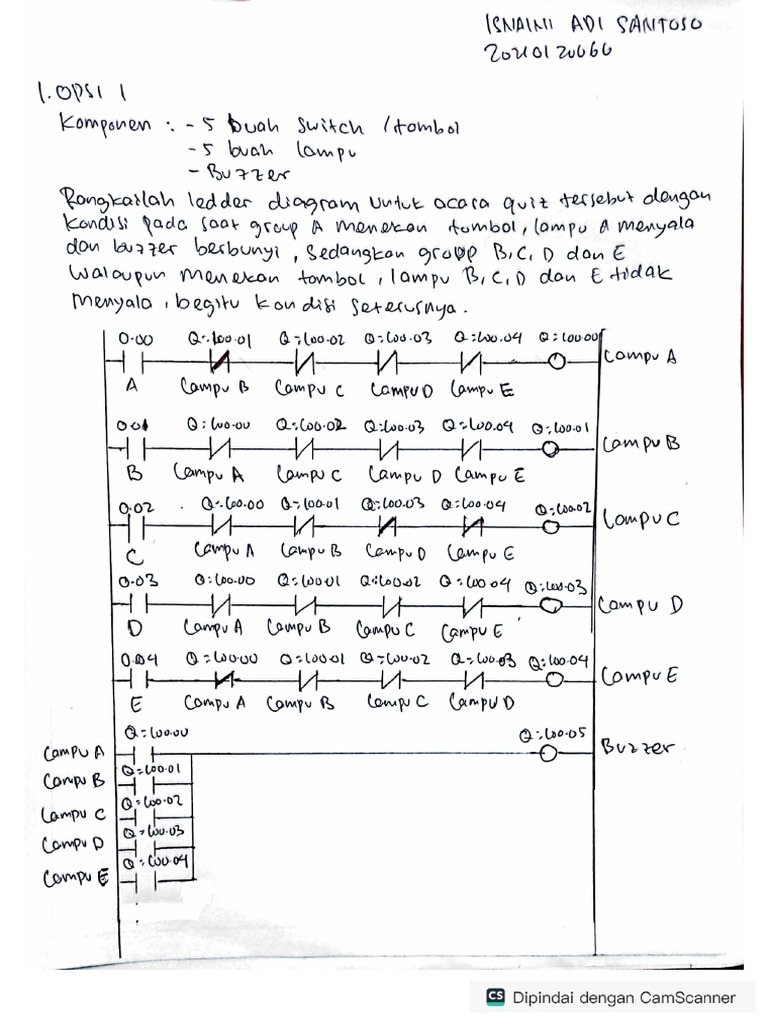 ISNAINI ADI SANTOSO
20210120060
1. OPSI 1
Komponen : - 5 buah switch /tombol
- 5 buah lampu
- Buzzer
Rangkailah ledder diagram untuk acara quiz tersebut dengan
kondisi pada saat group A menekan tombol, lampu A menyala
dan buzzer berbunyi, sedangkan group B, C, D dan E
Walaupun menekan tombol, lampu B, C, D dan E tidak
menyala, begitu kondisi seterusnya.
0.00 Q:100.01 Q:100.02 Q:100.03 Q:100.04 Q:100.00
Lampu A
A Lampu B Lampu C Lampu D Lampu E
0.01 Q:100.00 Q:100.02 Q:100.03 Q:100.04 Q:100.01
Lampu B
B Lampu A Lampu C Lampu D Lampu E
0.02 Q:100.00 Q:100.01 Q:100.03 Q:100.04 Q:100.02
Lampu C
C Lampu A Lampu B Lampu D Lampu E
0.03 Q:100.00 Q:100.01 Q:100.02 Q:100.04 Q:100.03
Lampu D
D Lampu A Lampu B Lampu C Lampu E
0.04 Q:100.00 Q:100.01 Q:100.02 Q:100.03 Q:100.04
Lampu E
E Lampu A Lampu B Lampu C Lampu D
Q:100.00 Q:100.05
Lampu A Buzzer
Q:100.01
Lampu B
Q:100.02
Lampu C
Q:100.03
Lampu D
Q:100.04
Lampu E
CS Dipindai dengan CamScanner